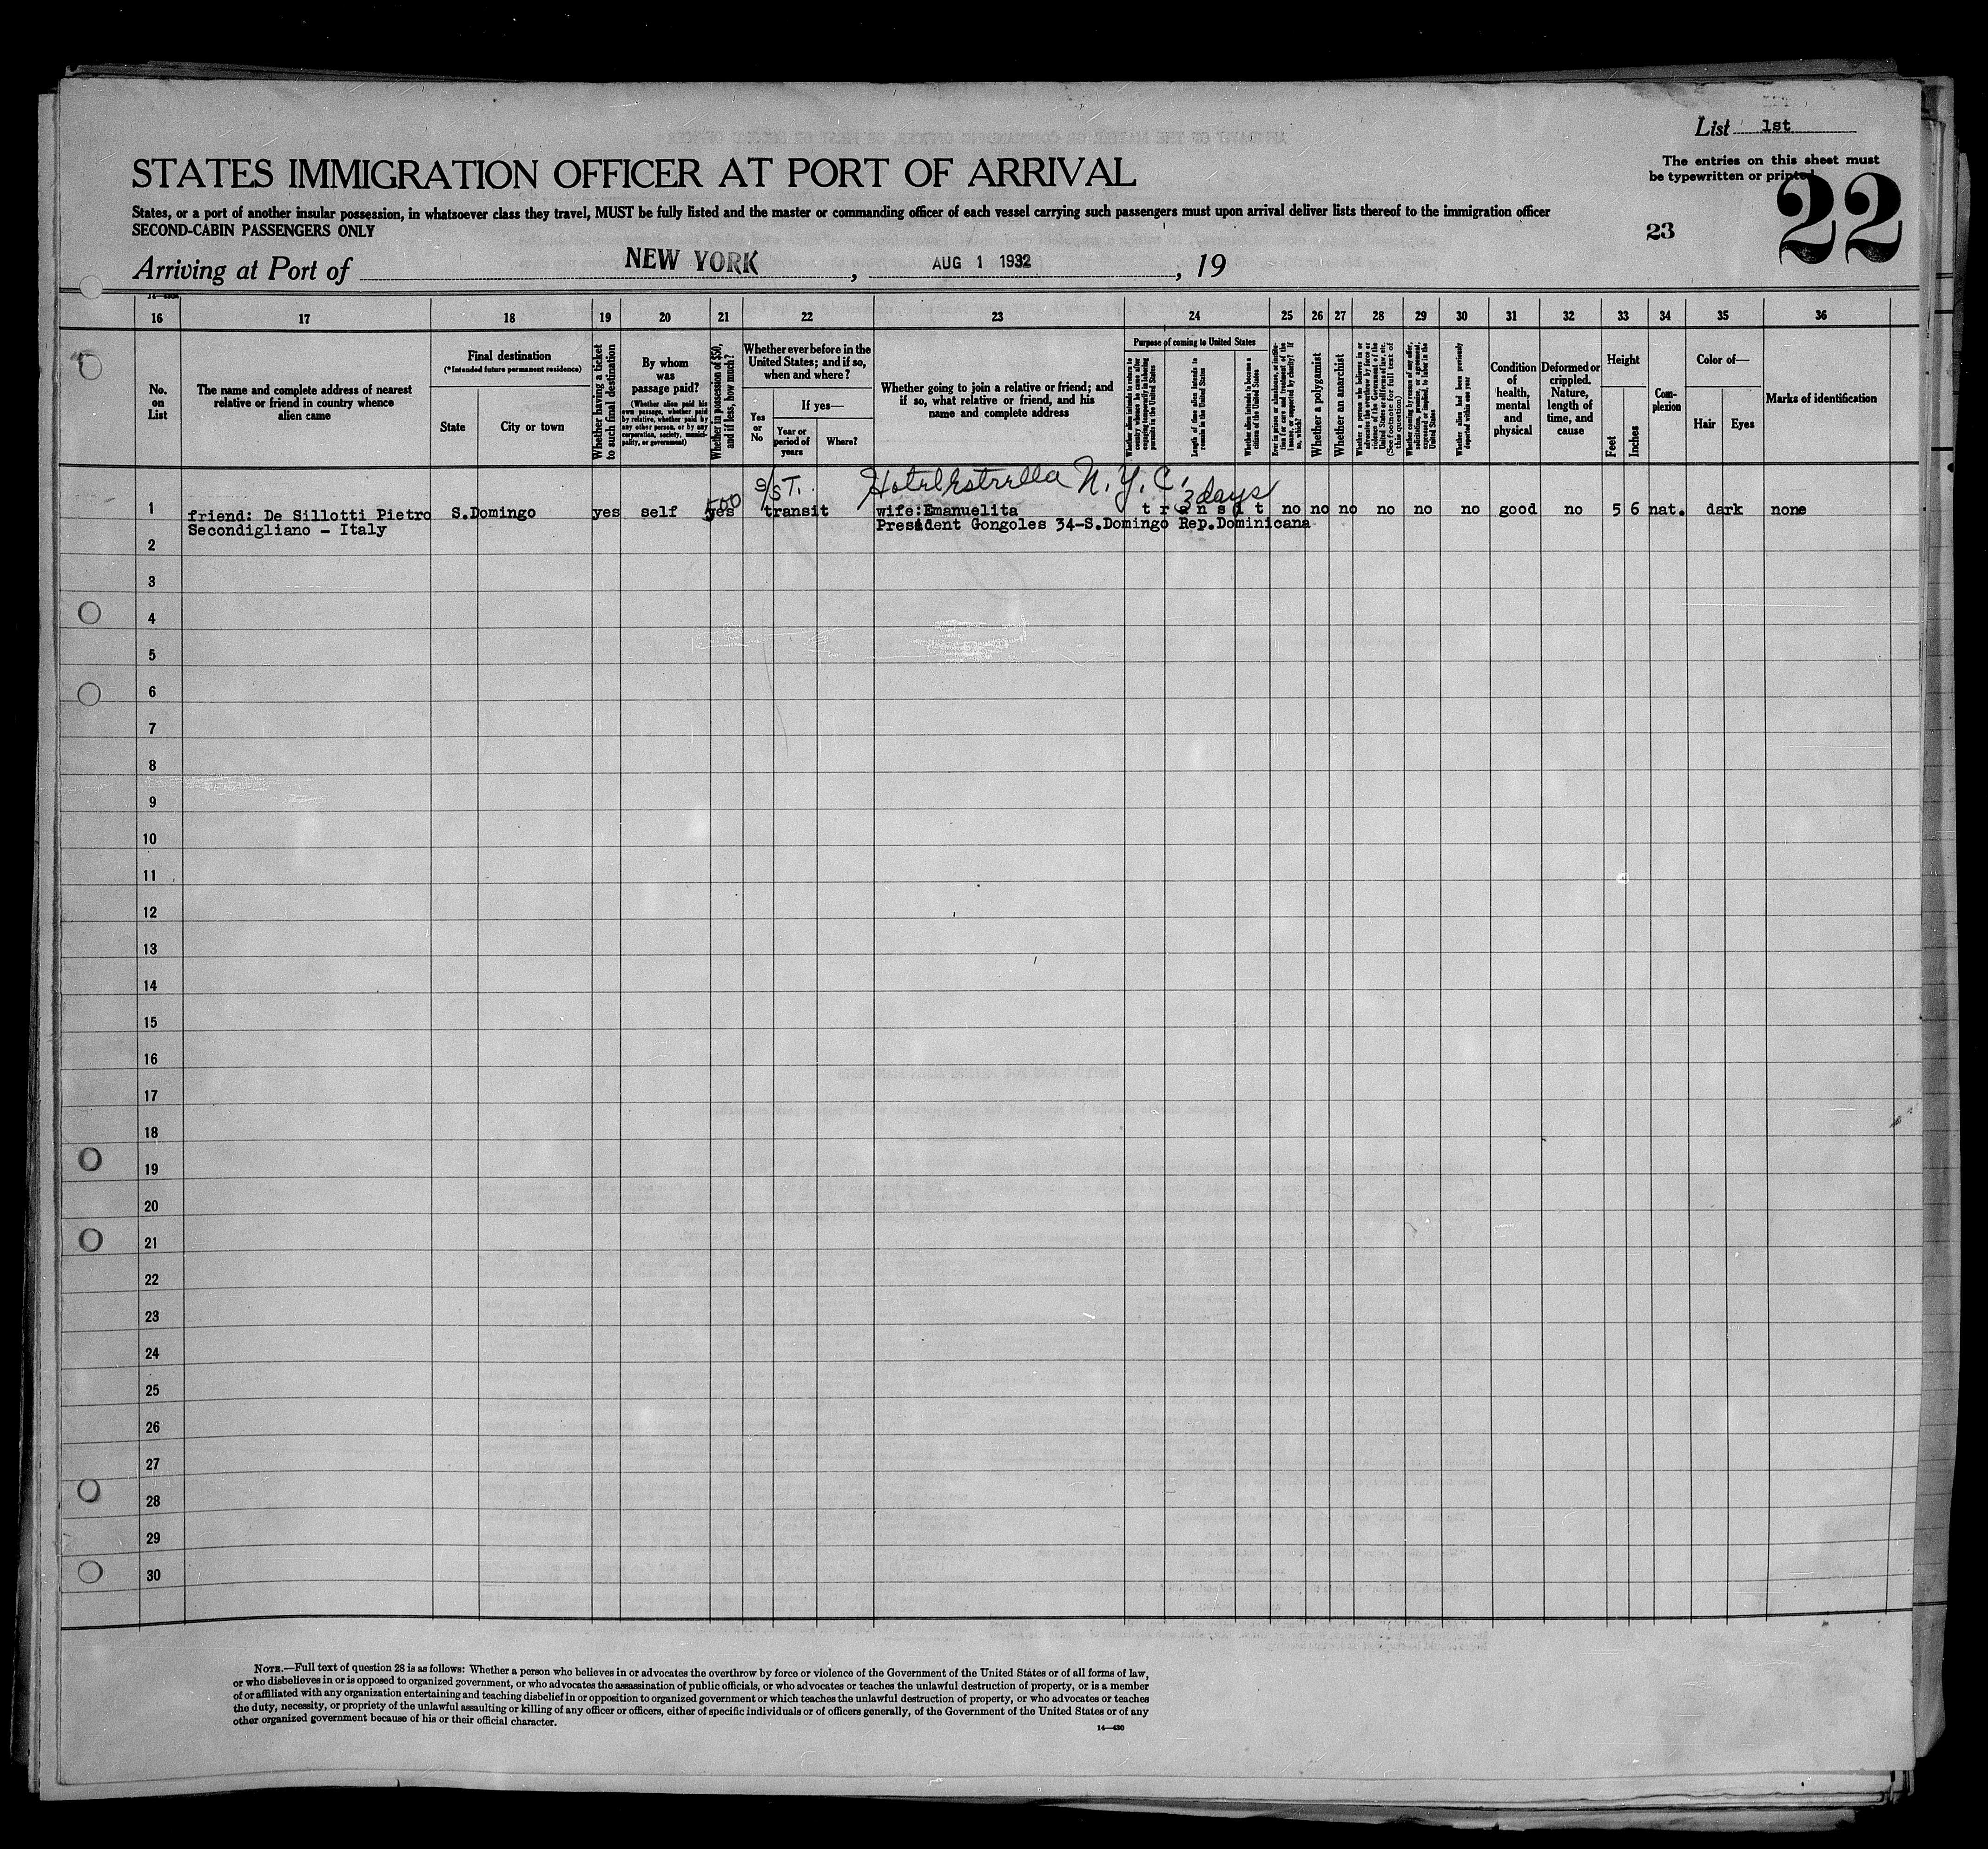 List 1st
The entries on this sheet must
be typewritten or printed
STATES IMMIGRATION OFFICER AT PORT OF ARRIVAL
22
States, or a port of another insular possession, in whatsoever class they travel, MUST be fully listed and the master or commanding officer of each vessel carrying such passengers must upon arrival deliver lists thereof to the immigration officer
SECOND-CABIN PASSENGERS ONLY
23
Arriving at Port of NEW YORK, AUG 1 1932, 19
16 17 18 19 20 21 22 23 24 25 26 27 28 29 30 31 32 33 34 35 36
No.
on
List
The name and complete address of nearest
relative or friend in country whence
alien came
Final destination
(*Intended future permanent residence)
State
City or town
Whether having a ticket
to such final destination
By whom
was
passage paid?
(Whether alien paid his
own passage, whether paid
by relative, whether paid by
any other person, or by any
corporation, society, munici-
pality, or government)
Whether in possession of $50,
and if less, how much?
Whether ever before in the
United States; and if so,
when and where?
Yes
or
No
If yes—
Year or
period of
years
Where?
Whether going to join a relative or friend; and
if so, what relative or friend, and his
name and complete address
Purpose of coming to United States
Whether alien intends to return to
country whence he came after
engaging temporarily in laboring
pursuits in the United States
Length of time alien intends to
remain in the United States
Whether alien intends to become a
citizen of the United States
Ever in prison or almshouse, or institu-
tion for care and treatment of the
insane, or supported by charity? If
so, which?
Whether a polygamist
Whether an anarchist
Whether a person who believes in or
advocates the overthrow by force or
violence of the Government of the
United States or all forms of law, etc.
(See footnote for full text of
this question)
Whether coming by reason of any offer,
solicitation, promise, or agreement,
expressed or implied, to labor in the
United States
Whether alien had been previously
deported within one year
Condition
of
health,
mental
and
physical
Deformed or
crippled.
Nature,
length of
time, and
cause
Height
Feet
Inches
Com-
plexion
Color of—
Hair
Eyes
Marks of identification
S/S T. Hotel Estrella N.Y.C.
500 3 days
1 friend: De Sillotti Pietro S.Domingo yes self yes transit wife:Emanuelita transit no no no no no no good no 5 6 nat. dark none
Secondigliano - Italy President Gongoles 34-S.Domingo Rep.Dominicana
2
3
4
5
6
7
8
9
10
11
12
13
14
15
16
17
18
19
20
21
22
23
24
25
26
27
28
29
30
NOTE.—Full text of question 28 is as follows: Whether a person who believes in or advocates the overthrow by force or violence of the Government of the United States or of all forms of law,
or who disbelieves in or is opposed to organized government, or who advocates the assassination of public officials, or who advocates or teaches the unlawful destruction of property, or is a member
of or affiliated with any organization entertaining and teaching disbelief in or opposition to organized government or which teaches the unlawful destruction of property, or who advocates or teaches
the duty, necessity, or propriety of the unlawful assaulting or killing of any officer or officers, either of specific individuals or of officers generally, of the Government of the United States or of any
other organized government because of his or their official character.
14—430